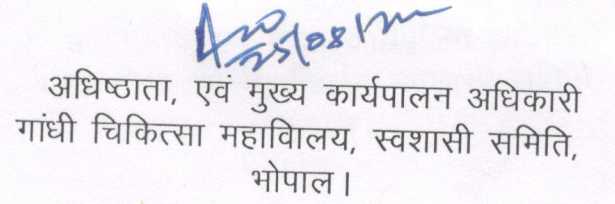 25/08
अधिष्ठाता, एवं मुख्य कार्यपालन अधिकारी
गांधी चिकित्सा महाविालय, स्वशासी समिति,
भोपाल।